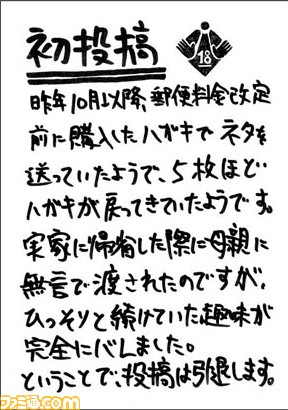 初投稿
18
昨年10月以降、郵便料金改定
前に購入したハガキでネタを
送っていたようで、5枚ほど
ハガキが戻ってきていたようです。
実家に帰省した際に母親に
無言で渡されたのですが、
ひっそりと続けていた趣味が
完全にバレました。
ということで、投稿は引退します。
ファミ通.com